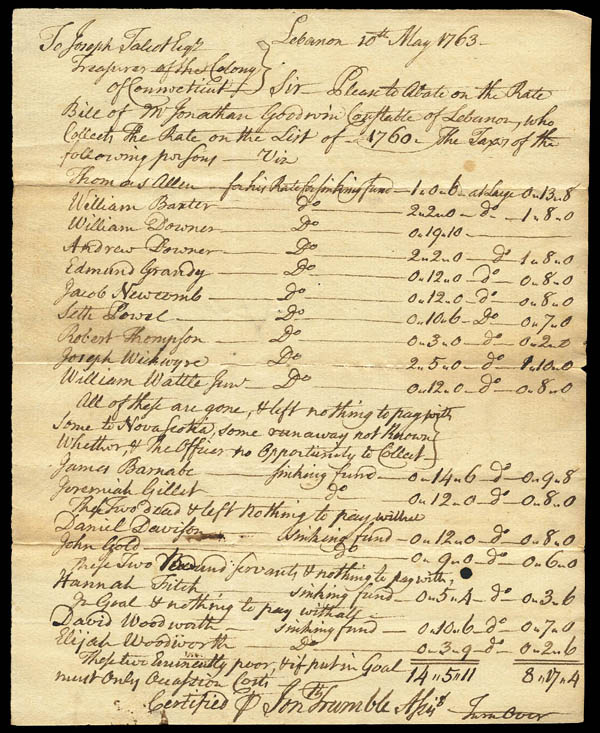 Lebanon 10th May 1763
To Joseph Talcot Esqr
Treasurer of the Colony
of Connecticut
Sir Please to Abate on the Rate
Bill of Mr Jonathan Goodwin Constable of Lebanon, who
Collects the Rate on the List of 1760. The Taxes of the
following persons Viz
Thomas Allen for his Rate for sinking fund 1,,0,,6 at Large 0,,13,,8
William Baxter Do 2,,2,,0 do 1,,8,,0
William Downer Do 0,,19,,10
Andrew Downer Do 2,,2,,0 do 1,,8,,0
Edmund Grandy Do 0,,12,,0 do 0,,8,,0
Jacob Newcomb Do 0,,12,,0 do 0,,8,,0
Seth Powel Do 0,,10,,6 Do 0,,7,,0
Robert Thompson Do 0,,3,,0 do 0,,2,,0
Joseph Do 2,,5,,0 do 1,,10,,0
William Wattle Junr Do 0,,12,,0 do 0,,8,,0
All of these are gone, & left nothing to pay with
Some to Novascotia, some runaway not known
Whether, & The Officer no Opportunity to Collect
James Barnabe sinking fund 0,,14,,6 do 0,,9,,8
Jeremiah Gillet do 0,,12,,0 do 0,,8,,0
These Two dead & left Nothing to pay
Daniel Davison sinking fund 0,,12,,0 do 0,,8,,0
John Gold do 0,,9,,0 do 0,,6,,0
These Two and servants, & nothing to pay with,
Hannah Fitch sinking fund 0,,5,,4 do 0,,3,,6
In Goal & nothing to pay withall
David Woodworth sinking fund 0,,10,,6 do 0,,7,,0
Elijah Woodworth Do 0,,3,,9 do 0,,2,,6
These two Eminently poor, & if put in Goal 14,,5,,11 8,,17,,4
must Only Occasion Costs
Certified P Jonth Trumble Assist
Turn Over